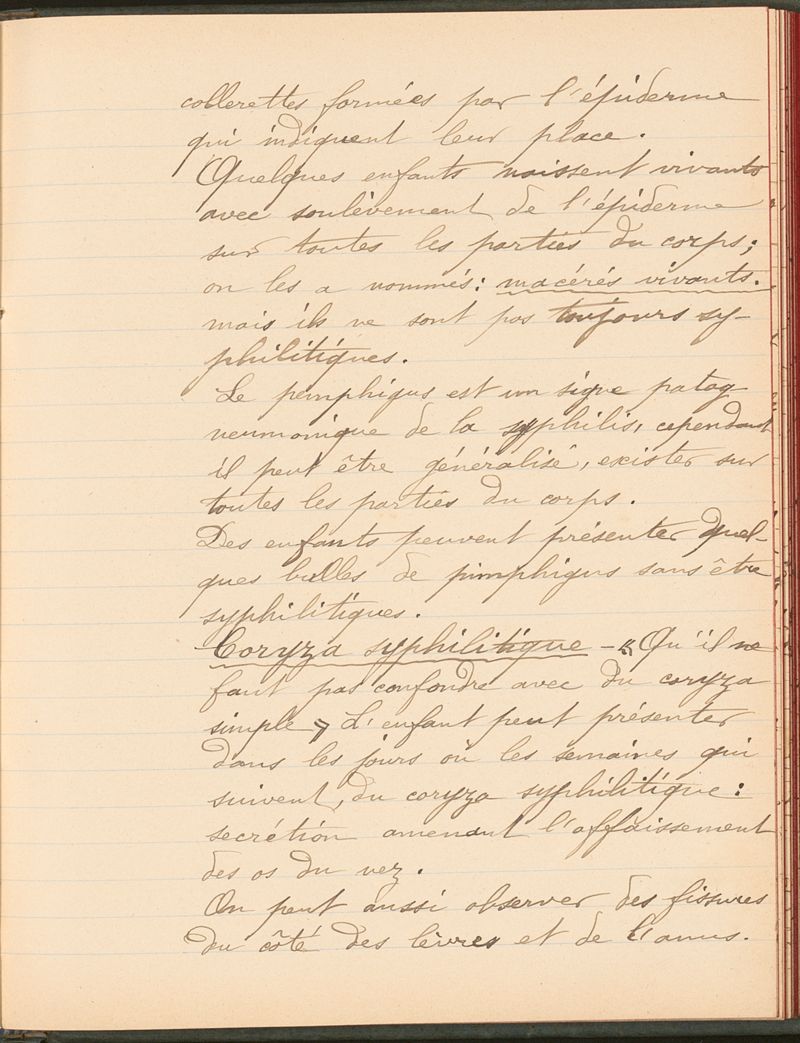 collerettes formées par l'épiderme
qui indiquent leur place.
Quelques enfants naissent vivants
avec soulèvement de l'épiderme
sur toutes les parties du corps;
on les a nommés: macérés vivants.
mais ils ne sont pas toujours sy-
philitiques.
Le pemphigus est un signe patog
neumonique de la syphilis, cependant
il peut être généralisé, exister sur
toutes les parties du corps.
Des enfants peuvent présenter quel-
ques bulles de pimphigus sans être
syphilitiques.
Coryza syphilitique - « Qu'il ne
faut pas confondre avec du coryza
simple » L'enfant peut présenter
dans les jours où les semaines qui
suivent, du coryza syphilitique:
secrétion amenant l'affaissement
des os du nez.
On peut aussi observer des fissures
du côté des lèvres et de l'anus.